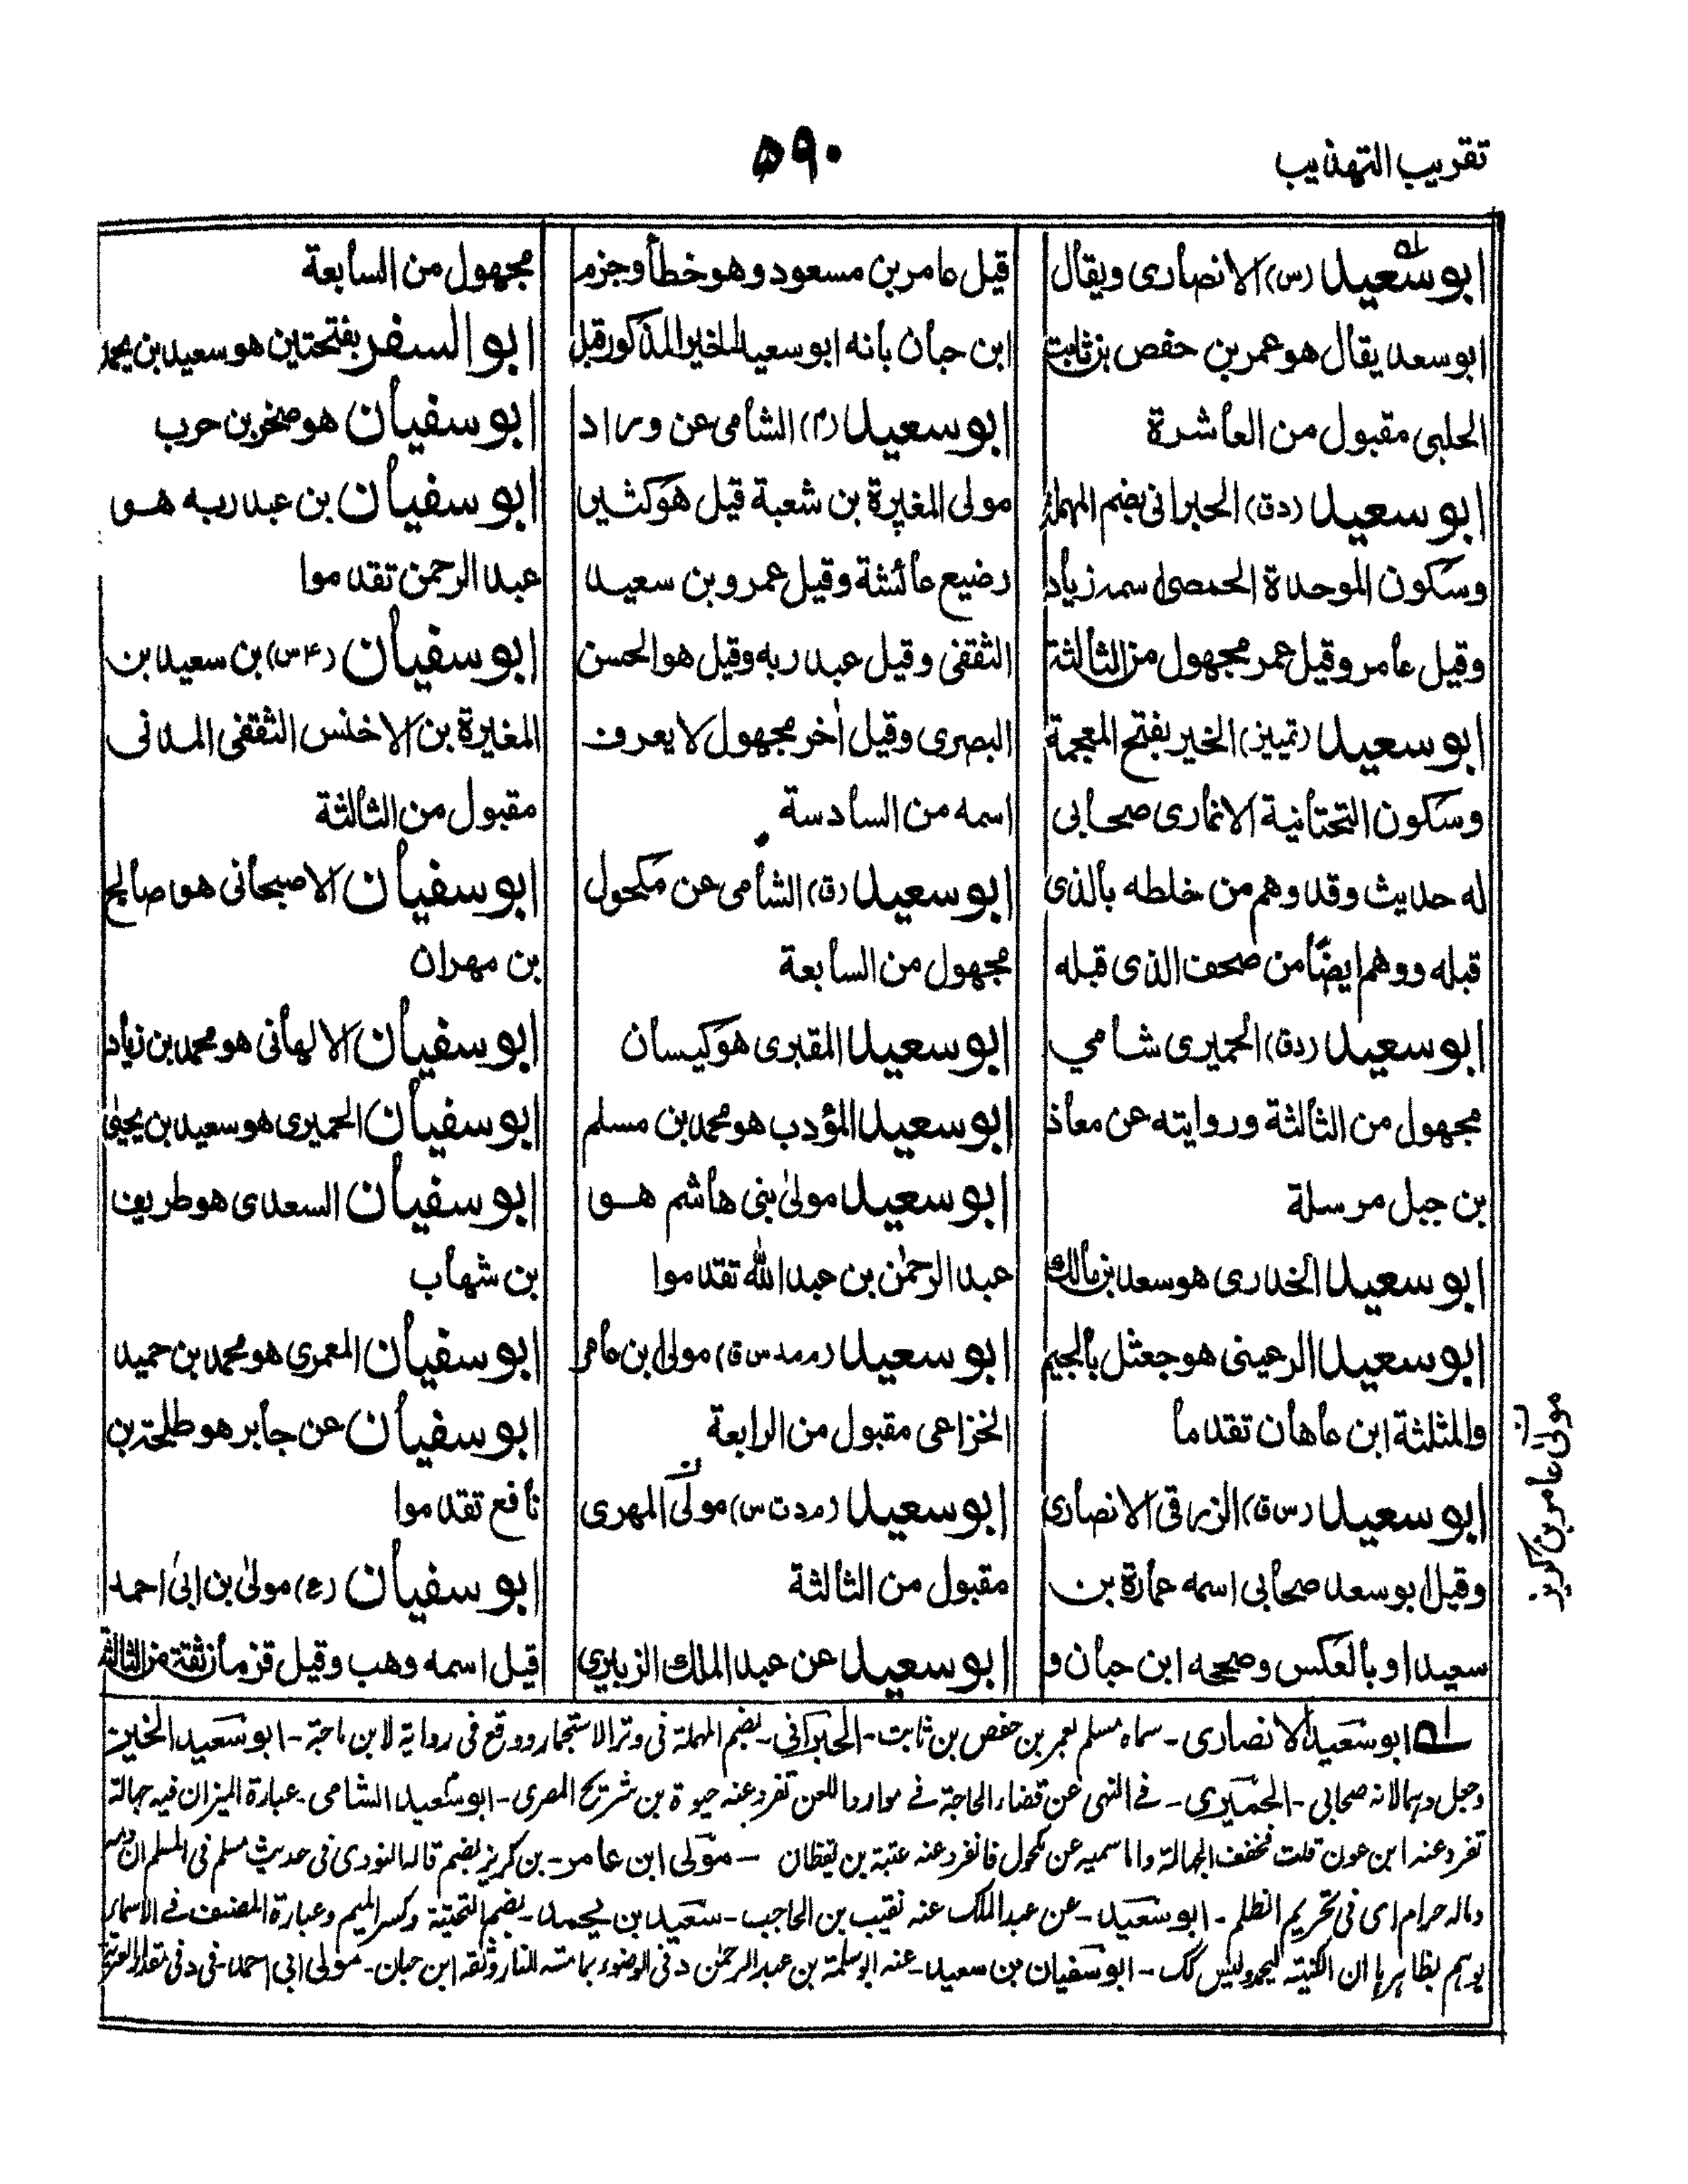 تقريب التهذيب
۵۹۰
ابو سعيد (س) الانصاری ويقال
ابو سعد يقال هو عمر بن حفص بن ثابت
الحلبی مقبول من العاشرة
ابو سعيد (دق) الحبرانی بضم المهملة
وسكون الموحدة الحمصی اسمه زياد
وقيل عامر وقيل عمر مجهول من الثالثة
ابو سعيد (تمييز) الخير بفتح المعجمة
وسكون التحتانية الانماری صحابی
له حديث وقد وهم من خلطه بالذی
قبله ووهم ايضا من صحف الذی قبله
ابو سعيد (دق) الحميری شامی
مجهول من الثالثة وروايته عن معاذ
بن جبل مرسلة
ابو سعيد الخدری هو سعد بن مالك
ابو سعيد الرعينی هو جعثل بالجيم
والمثلثة ابن هاعان تقدما
ابو سعيد (س ق) الزرقی الانصاری
وقيل ابو سعد صحابی اسمه عمارة بن
سعيد او بالعكس وصححه ابن حبان و
قيل عامر بن مسعود وهو خطأ وجزم
ابن حبان بانه ابو سعيد الخير المذكور قبل
ابو سعيد (م) الشامی عن وراد
مولی المغيرة بن شعبة قيل هو كثير
رضيع عائشة وقيل عمرو بن سعيد
الثقفی وقيل عبد ربه وقيل هو الحسن
البصری وقيل أخر مجهول لا يعرف
اسمه من السادسة
ابو سعيد (ق) الشامی عن مكحول
مجهول من السابعة
ابو سعيد المقبری هو كيسان
ابو سعيد المؤدب هو محمد بن مسلم
ابو سعيد مولیٰ بنی هاشم هو
عبد الرحمٰن بن عبد الله تقدموا
ابو سعيد (م مد س ق) مولی ابن عامر
الخزاعی مقبول من الرابعة
ابو سعيد (م د ت س) مولی المهری
مقبول من الثالثة
ابو سعيد عن عبد الملك الزبيری
مجهول من السابعة
ابو السفر بفتحتين هو سعيد بن يحمد
ابو سفيان هو صخر بن حرب
ابو سفيان بن عبد ربه هو
عبد الرحمن تقدموا
ابو سفيان (د س) بن سعيد بن
المغيرة بن الاخنس الثقفی المدنی
مقبول من الثالثة
ابو سفيان الاصبحانی هو صالح
بن مهران
ابو سفيان الالهانی هو محمد بن زياد
ابو سفيان الحميری هو سعيد بن يحيیٰ
ابو سفيان السعدی هو طريف
بن شهاب
ابو سفيان المعمری هو محمد بن حميد
ابو سفيان عن جابر هو طلحة بن
نافع تقدموا
ابو سفيان (ع) مولیٰ بن ابی احمد
قيل اسمه وهب وقيل قزمان ثقة من الثالثة
مولی عامر بن كريز
ابو سعيد الانصاری - سماه مسلم لعمر بن حفص بن ثابت - الحبرانی - بضم المهملة فی وتر الاستجمار ووقع فی رواية لابن ماجة - ابو سعيد الخير
وجعل وہما لانه صحابی - الحميری - فی النهی عن قضاء الحاجة فے موارد اللعن تفرد عنه حيوة بن شريح المصری - ابو سعيد الشامی - عبارة الميزان فيه جهالة
تفرد عنه ابن عون قلت فخفف الجهالة واما سميه عن مكحول فانفرد عنه عتبة بن يقظان - مولی ابن عامر - بن كريز بضم قاله النووی فی حديث مسلم فی المسلم ان دمه
وماله حرام ای فی تحريم الظلم - ابو سعيد - عن عبد الملك عنه نقيب بن الحاجب - سعيد بن يحمد - بضم التحتية وكسر الميم وعبارة المصنف فے الاسماء
يوہم بظاہرہا ان الكنية ليحمد وليس كك - ابو سفيان بن سعيد - عنه ابو سلمة بن عبد الرحمٰن د فی الوضوء بما مسته النار وثقه ابن حبان - مولی ابی احمد - فی